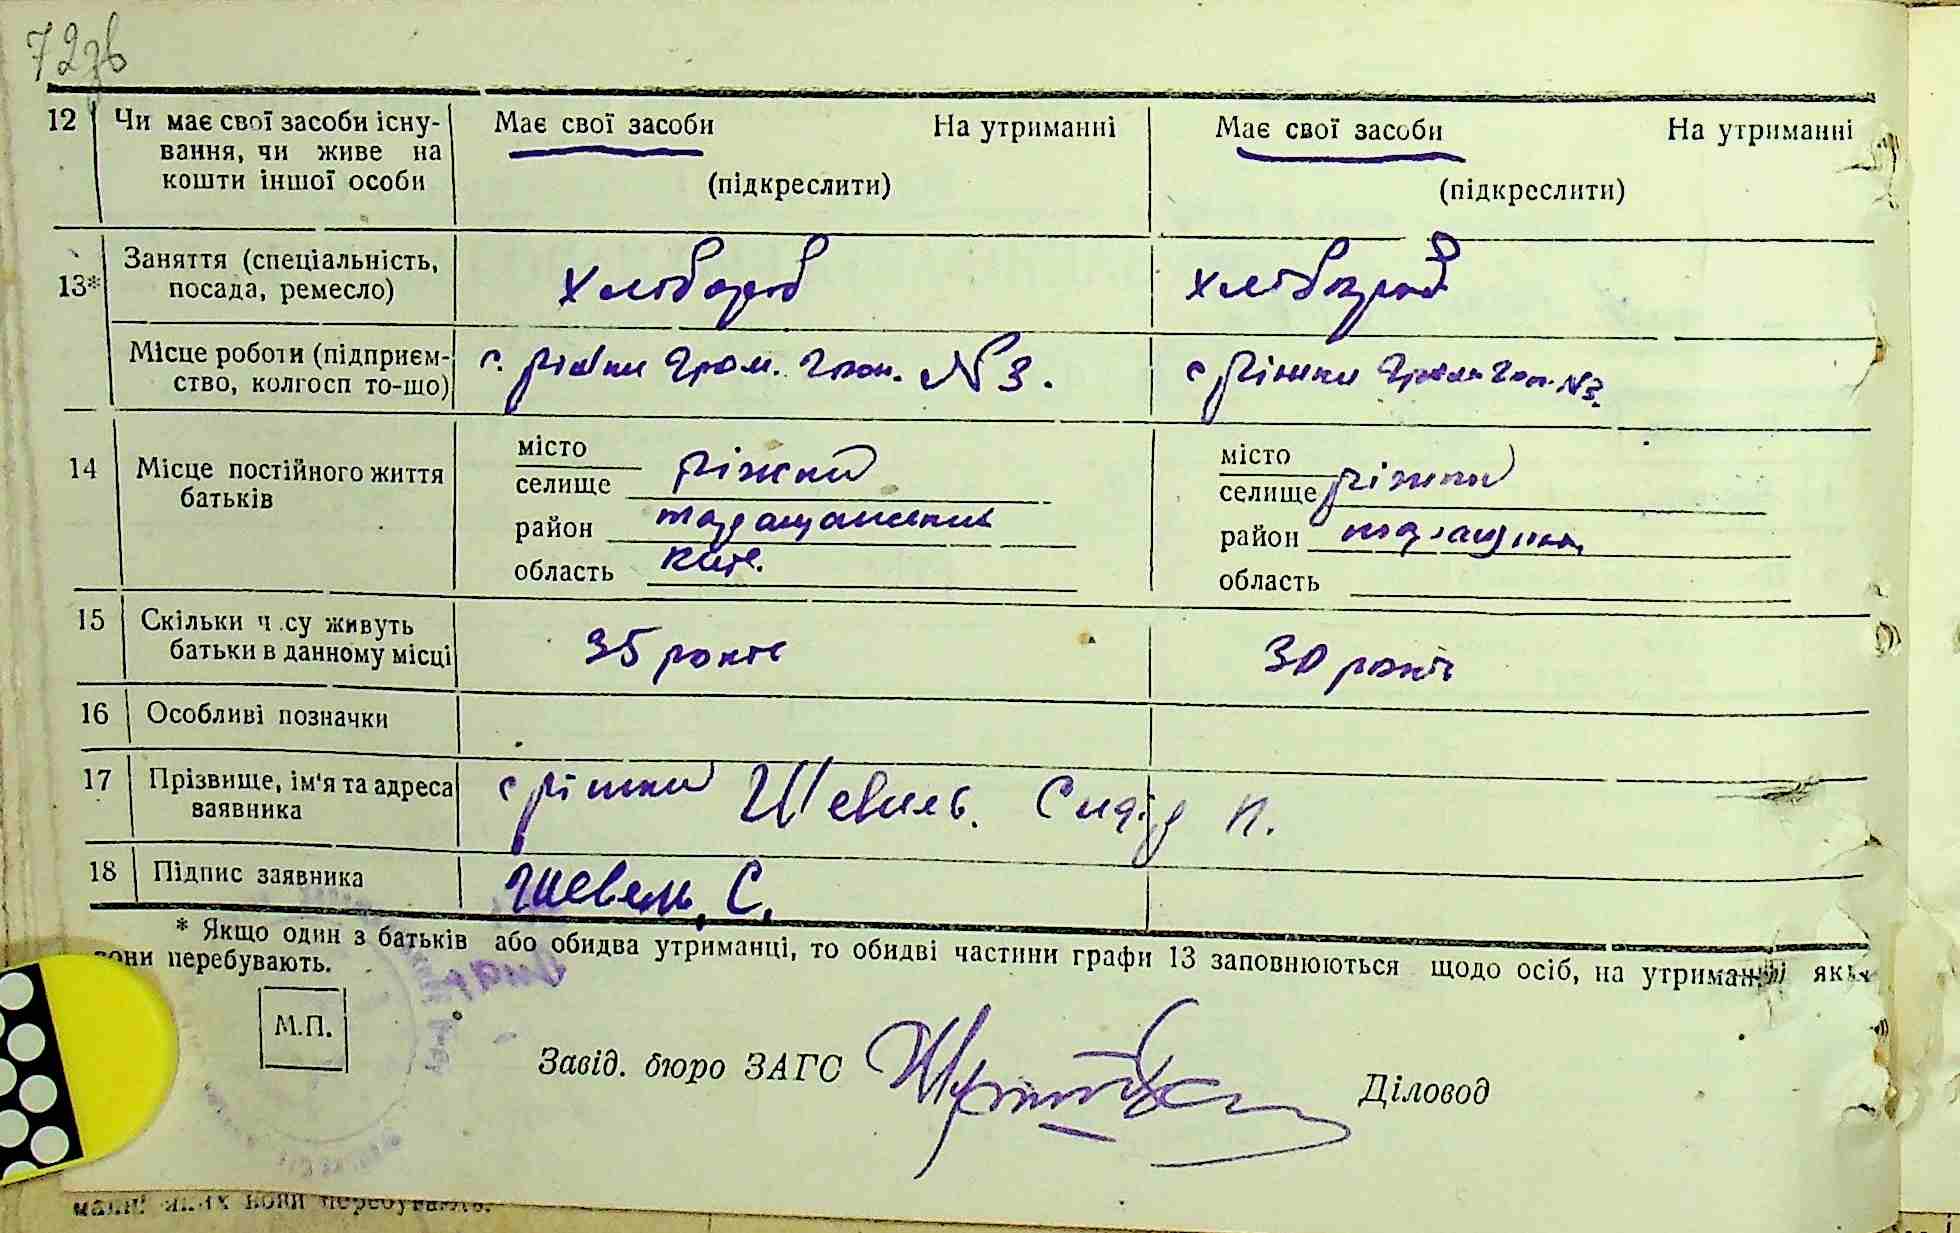 72зв
12 Чи має свої засоби існу- Має свої засоби На утриманні Має свої засоби На утриманні
вання, чи живе на
кошти іншої особи (підкреслити) (підкреслити)
13* Заняття (спеціальність,
посада, ремесло) хлібороб хлібороб
Місце роботи (підприєм- с. Ріжки Гром. Госп. №3. с Ріжки Гром Госп. №3.
ство, колгосп то-що)
14 Місце постійного життя місто місто
батьків селище Ріжки селище Ріжки
район таращанський район
область Київ. область
15 Скільки ч су живуть
батьки в данному місці 35 років 30 років
16 Особливі позначки
17 Прізвище, ім'я та адреса с Ріжки Шевель. Сидір П.
заявника
18 Підпис заявника Шевель, С.
* Якщо один з батьків або обидва утриманці, то обидві частини графи 13 заповнюються щодо осіб, на утриманні яких
вони перебувають.
М.П.
Завід. бюро ЗАГС Діловод
манні яких вони перебувають.